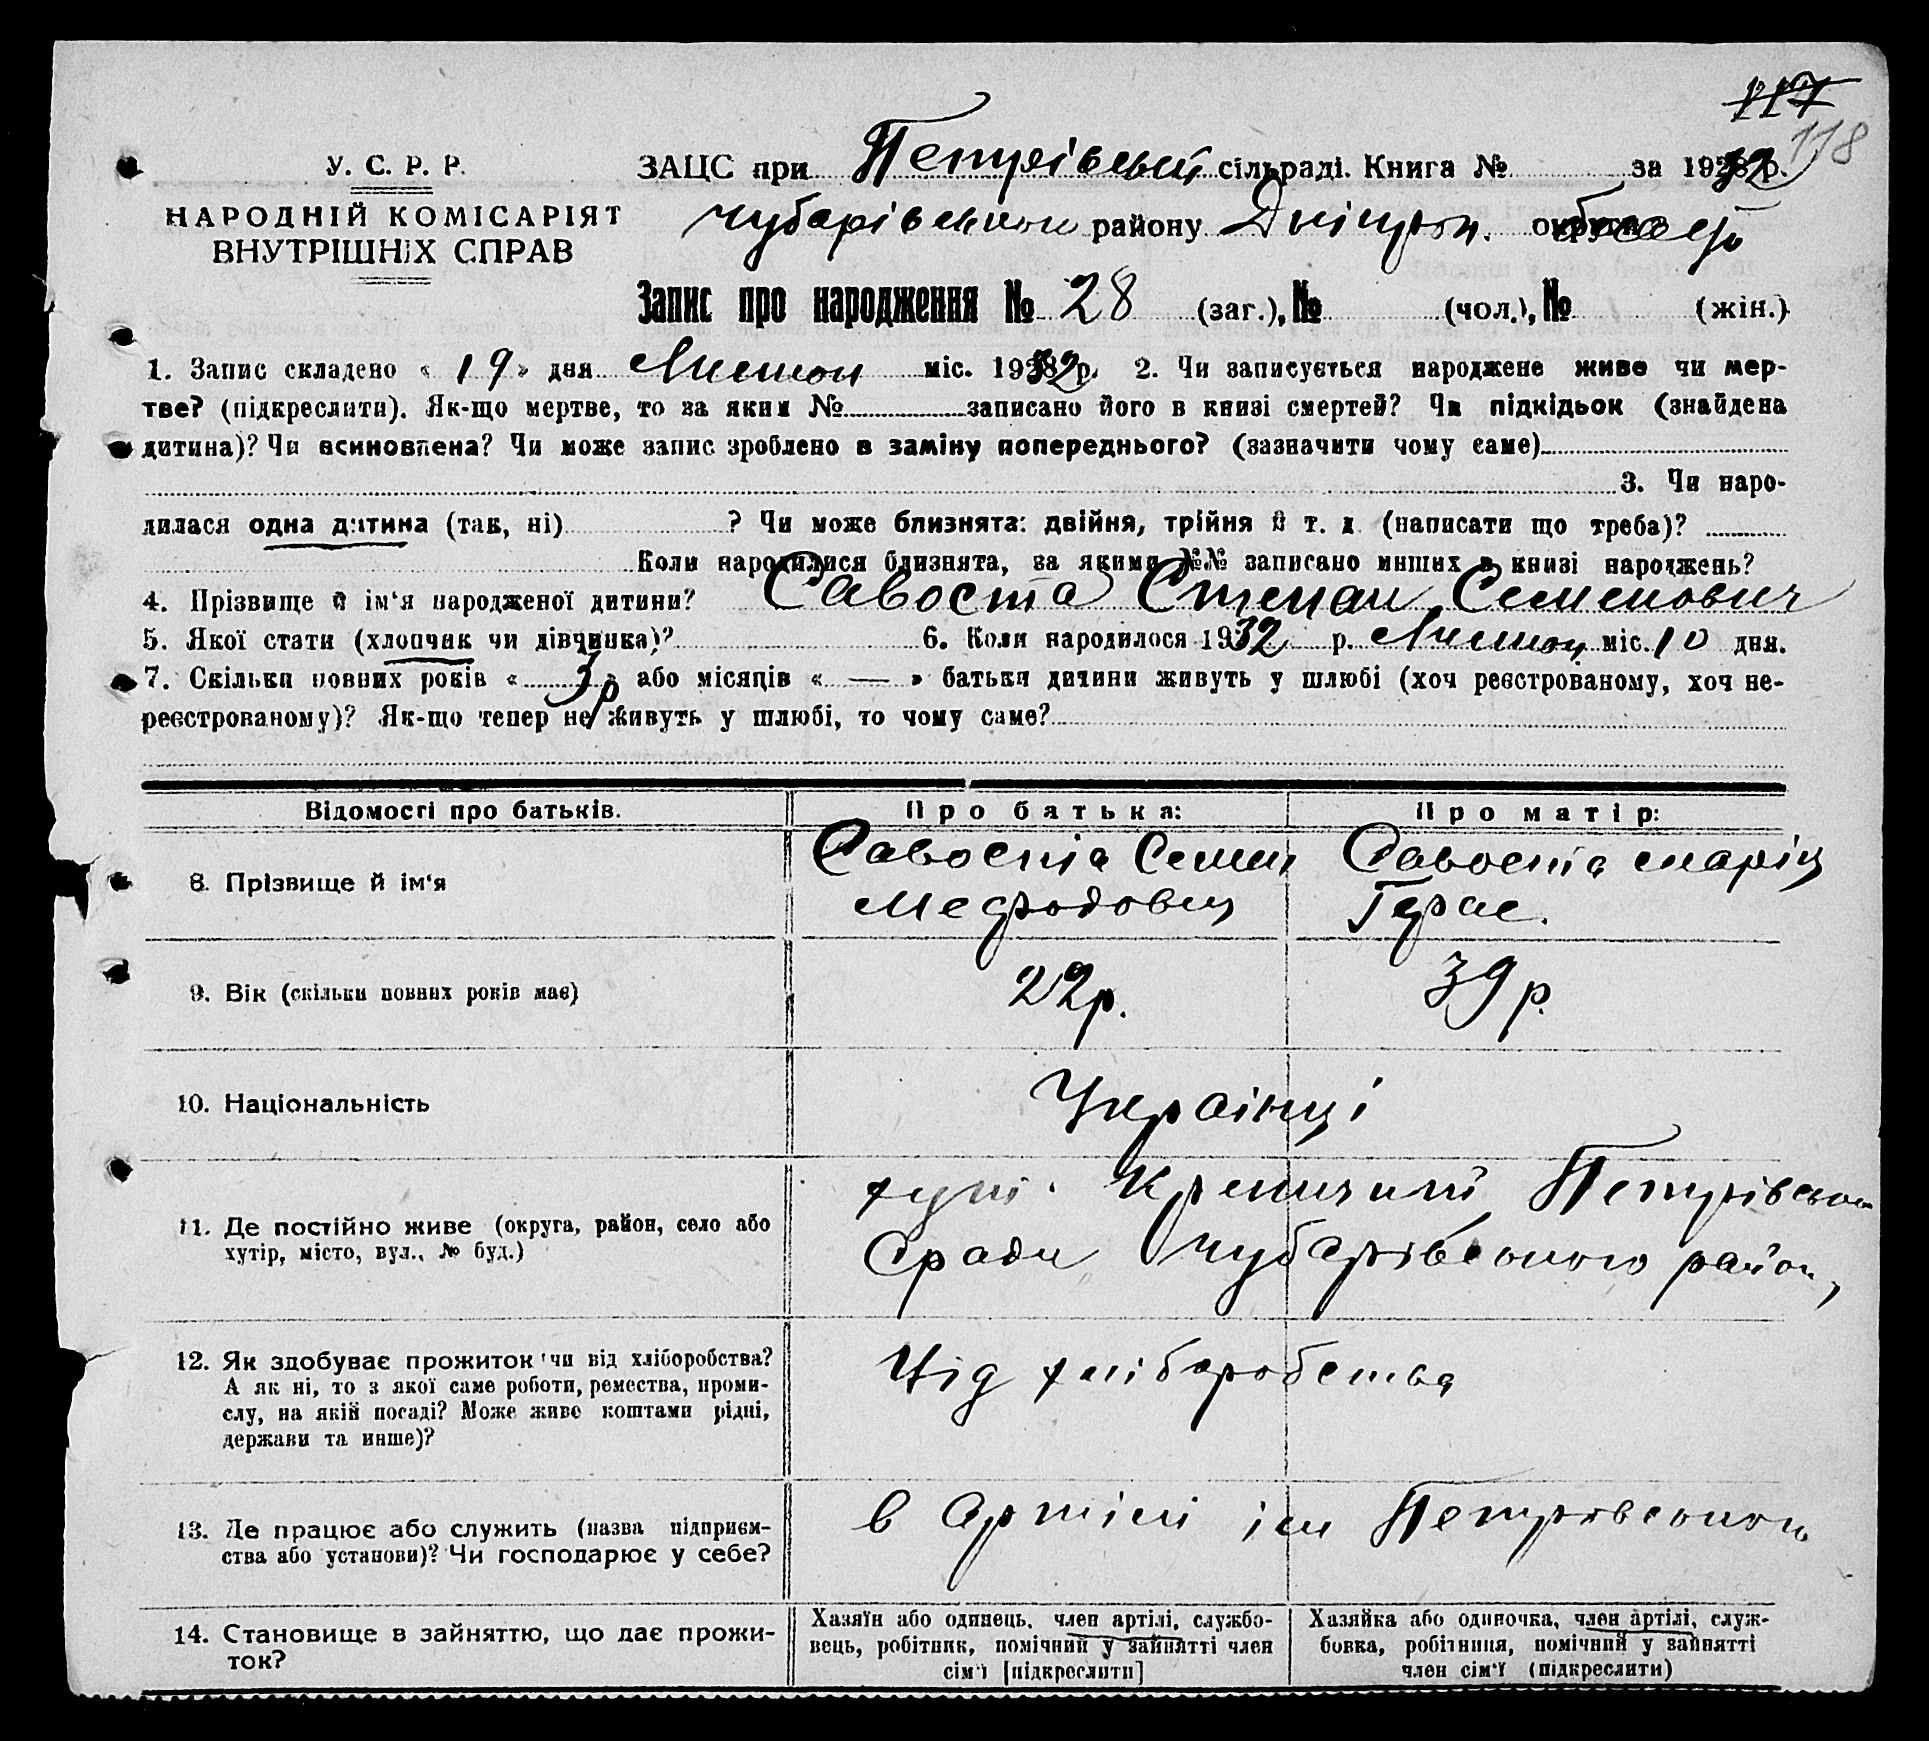 117
118
У. С. Р. Р.
НАРОДНІЙ КОМІСАРІЯТ
ВНУТРІШНІХ СПРАВ
ЗАЦС при Петрівській сільраді. Книга № за 1932 р.
Чубарівського району Дніпроп. області
Запис про народження № 28 (заг.), № (чол.), № (жін.)
1. Запис складено « 19 » дня Листоп міс. 1932 р. 2. Чи записується народжене живе чи мер-
тве? (підкреслити). Як-що мертве, то за яким № записано його в книзі смертей? Чи підкідьок (знайдена
дитина)? Чи всиновлена? Чи може запис зроблено в заміну попереднього? (зазначити чому саме)
3. Чи наро-
дилася одна дитина (так, ні) ? Чи може близнята: двійня, трійня й т. д. (написати що треба)?
Коли народилися близнята, за якими №№ записано инших в книзі народжень?
4. Прізвище й ім'я народженої дитини? Савоста Степан Семенович
5. Якої стати (хлопчик чи дівчинка)? 6. Коли народилося 1932 р. Листоп міс. 10 дня.
7. Скільки повних років « 3 р » або місяців « — » батьки дитини живуть у шлюбі (хоч реєстрованому, хоч не-
реєстрованому)? Як-що тепер не живуть у шлюбі, то чому саме?
Відомості про батьків. Про батька: Про матір:
8. Прізвище й ім'я
Савоста Семен
Мефодович
Савоста Марія
Герас.
9. Вік (скільки повних років має) 22р. 39р.
10. Національність Українці
11. Де постійно живе (округа, район, село або
хутір, місто, вул., № буд.)
хут. Петрівської
Сради Чубарівського район,
12. Як здобуває прожиток чи від хліборобства?
А як ні, то з якої саме роботи, ремества, проми-
слу, на якій посаді? Може живе коштами рідні,
держави та инше)?
Від хліборобства
13. Де працює або служить (назва підприєм-
ства або установи)? Чи господарює у себе?
в Артілі ім Петровського
14. Становище в зайняттю, що дає прожи-
ток?
Хазяїн або одинець, член артілі, службо-
вець, робітник, помічний у зайнятті член
сім'ї [підкреслити]
Хазяйка або одиночка, член артілі, служ-
бовка, робітниця, помічний у зайнятті
член сім'ї (підкреслити)